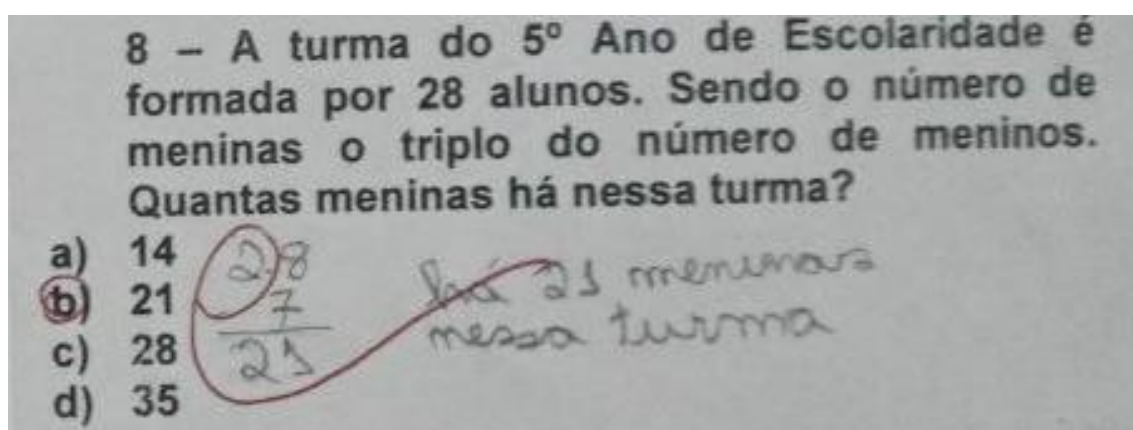 8 – A turma do 5º Ano de Escolaridade é
formada por 28 alunos. Sendo o número de
meninas o triplo do número de meninos.
Quantas meninas há nessa turma?
a) 14
b) 21
c) 28
d) 35
28
7
21
há 21 meninas
nessa turma